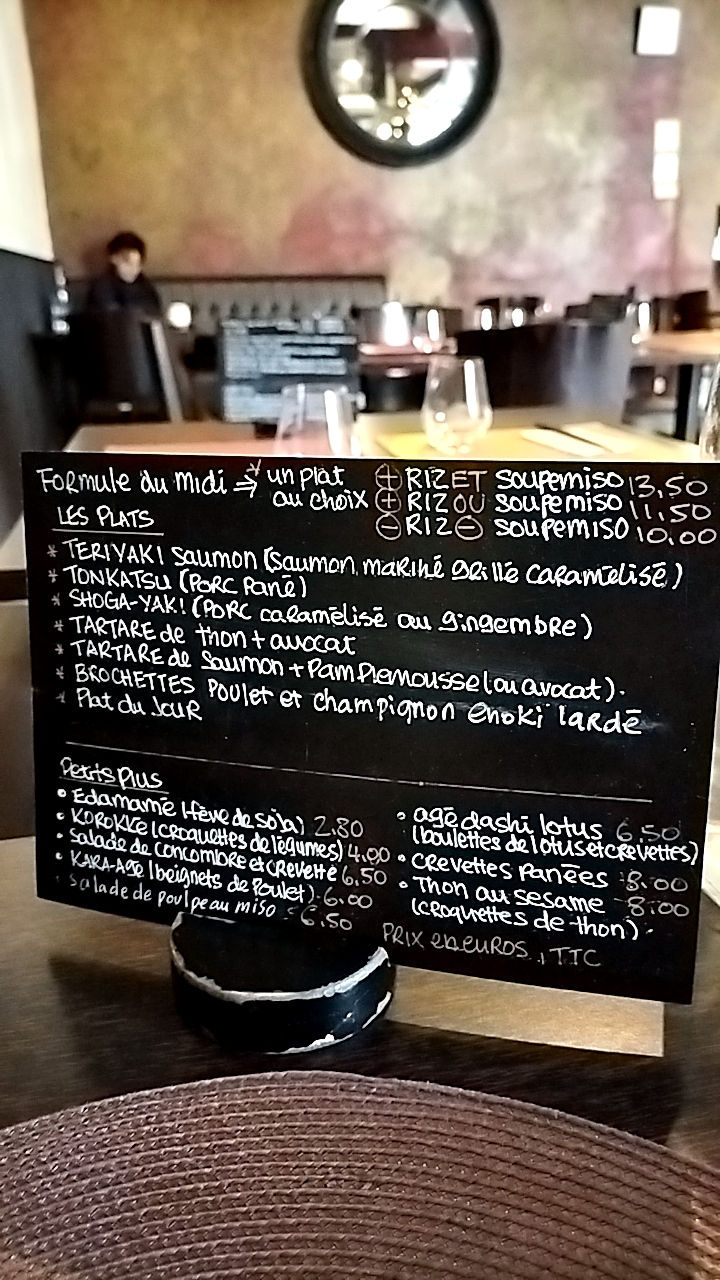 Formule du midi ⇒ * un plat au choix
⊕ RIZ ET soupe miso 13,50
⊕ RIZ OU soupe miso 11,50
⊖ RIZ ⊖ soupe miso 10.00
LES PLATS
* TERIYAKI saumon (saumon mariné grillé caramélisé)
* TONKATSU (PORC Pané)
* SHOGA-YAKI (PORC caramélisé au gingembre)
* TARTARE de thon + avocat
* TARTARE de saumon + Pamplemousse (ou avocat).
* BROCHETTES Poulet et champignon enoki lardé
* Plat du JOUR
Petits Plus
• Edamamé (fève de soja) 2.80
• KOROKKE (croquettes de légumes) 4.00
• Salade de concombre et crevette 6,50
• KARA-AGE (beignets de Poulet). 6.00
• salade de poulpe au miso - 6.50
• agé dashi lotus 6.50
(boulettes de lotus et crevettes)
• crevettes Panées 8.00
• Thon au sesame 8.00
(croquettes de thon).
PRIX en EUROS, TTC